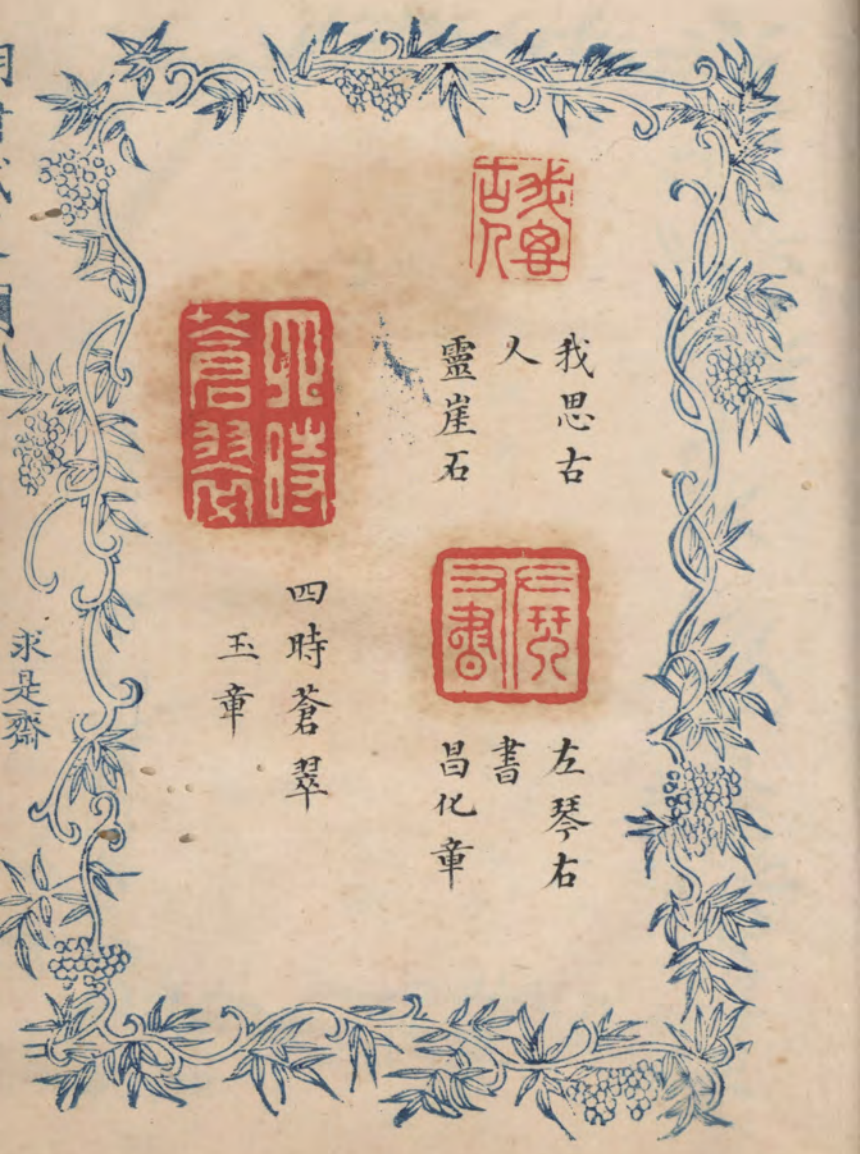 我思古人
我思古
人
靈崖石
左琴右書
左琴右
書
昌化章
四時蒼翠
四時蒼翠
玉章
求是齋